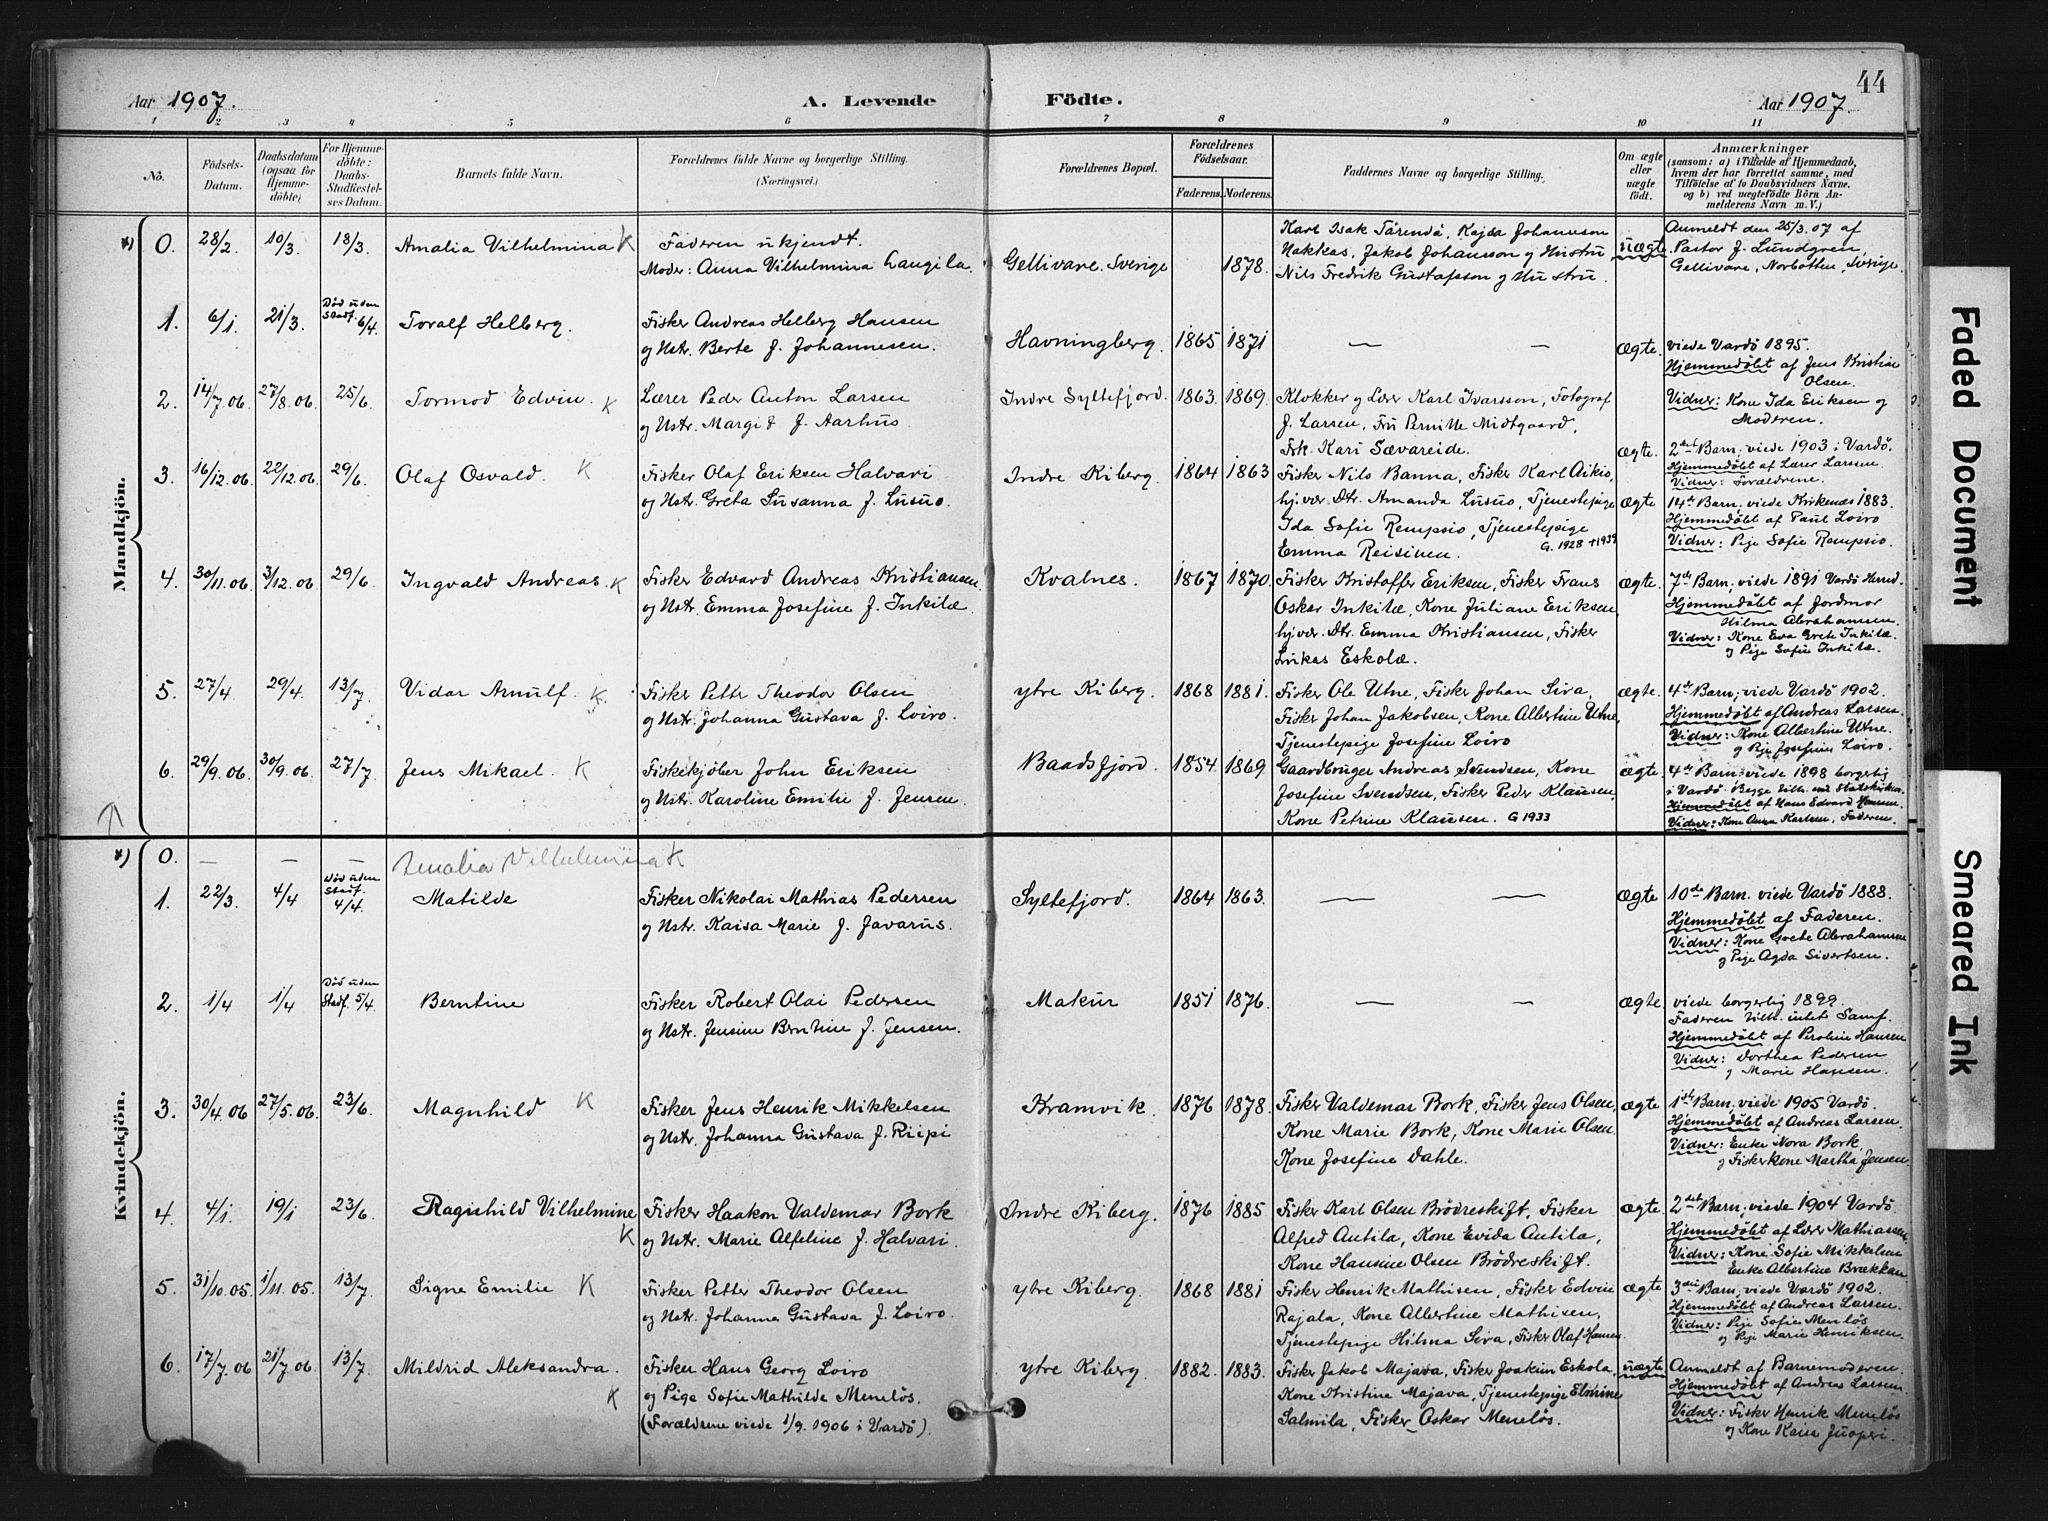 44
Aar 1907.
A. Levende Födte.
Aar 1907.
1 2 3 4 5 6 7 8 9 10 11
No.
Födsels-
Datum.
Daabsdatum
(ogsaa for
Hjemme-
döbte)
For Hjemme-
döbte:
Daabs-
Stadfæstel-
ses Datum.
Barnets fulde Navn.
Forældrenes fulde Navne og borgerlige Stilling.
(Næringsvei.)
Forældrenes Bopæl.
Forældrenes
Födselsaar.
Faderens. Moderens.
Faddernes Navne og borgerlige Stilling.
Om ægte
eller
uægte
født.
Anmærkninger
(saasom: a) i Tilfælde af Hjemmedaab,
hvem der har forrettet samme, med
Tilföielse af to Daabsvidners Navne,
og b) ved uegtefödte Börn An-
melderens Navn m. V.)
Mandkjön.
*) 0. 28/2. 10/3. 18/3. Amalia Vilhelmina K
Faderen ukjendt.
Moder: Anna Vilhelmina Laugila
Gellivare. Sverige 1878.
Karl Isak Tärendö, Kajsa Johansson
Nakkas, Jakob Johansson og Hustru,
Nils Fredrik Gustafsson og Hustru.
uægte
Anmeldt den 25/3.07 af
Pastor J. Lundgren,
Gellivare, Norbotten, Sverige.
1. 6/1. 21/3. Död uden
Stadf. 6/4. Toralf Helberg.
Fisker Andreas Helberg Hansen
og Hstr. Berte f. Johannesen.
Havningberg. 1865 1871
— —
ægte.
viede Vardö 1895.
Hjemmedöbt af Jens Kristian
Olsen.
Vidner: Kone Ida Eriksen og
Moderen.
2. 14/7.06. 27/8.06. 25/6. Tormod Edvin. K
Lærer Peder Anton Larsen
og Hstr. Margit f. Aarhus.
Indre Syltefjord. 1863. 1869.
Klokker og Lærer Karl Ivarsson, Fotograf
J. Larsen, Fru Pernille Midtgaard,
Frk. Kari Sævareide.
ægte.
2det Barn; viede 1903 i Vardö.
Hjemmedöbt af Lærer Larsen.
Vidner: Forældrene.
3. 16/12.06. 22/12.06. 29/6. Olaf Osvald. K
Fisker Olaf Eriksen Halvari
og Hstr. Greta Susanna f. Lusuo.
Indre Kiberg. 1864 1863
Fisker Nils Banna, Fisker Karl Aikio,
hj.vær. Dtr. Amanda Lusuo, Tjenestepige
Ida Sofie Rempsio, Tjenestepige
Emma Reisinen. G. 1928 +1939
ægte
14de Barn; viede Kirkenæs 1883.
Hjemmedöbt af Paul Loiro
Vidner: Pige Sofie Rempsio.
4. 30/11.06. 3/12.06. 29/6. Ingvald Andreas. K
Fisker Edvard Andreas Kristiansen
og Hstr. Emma Josefine f. Inkilæ.
Kvalnes. 1867 1870.
Fisker Kristoffer Eriksen, Fisker Frans
Oskar Inkilæ, Kone Juliane Eriksen,
hj.vær. Dtr. Emma Kristiansen, Fisker
Lukas Eskolæ.
ægte.
7de Barn; viede 1891 Vardö Herred.
Hjemmedöbt af Jordmor
Hilma Abrahamsen.
Vidner: Kone Eva Grete Inkilæ.
og Pige Sofie Inkilæ.
5. 27/4. 29/4. 13/7. Vidar Arnulf. K
Fisker Petter Theodor Olsen
og Hstr. Johanna Gustava f. Loiro.
ytre Kiberg. 1868 1881.
Fisker Ole Utne, Fisker Johan Siva,
Fisker Johan Jakobsen, Kone Albertine Utne,
Tjenestepige Josefine Loiro
ægte.
4de Barn; viede Vardö 1902.
Hjemmedöbt af Andreas Larsen.
Vidner: Kone Albertine Utne.
og Pige Josefine Loiro.
6. 29/9.06. 30/9.06. 27/7. Jens Mikael. K
Fiskekjöber John Eriksen
og Hstr. Karoline Emilie f. Jensen.
Baadsfjord. 1854. 1869.
Gaardbruger Andreas Svendsen, Kone
Josefine Svendsen, Fisker Peder Klausen,
Kone Petrine Klausen. G 1933
ægte.
4de Barn; viede 1898 borgerlig
i Vardö. Begge tilh. Statskirken.
Hjemmedöbt af Hans Edvard Hansen.
Vidner: Kone Anna Karlsen, Faderen.
Kvindekjön.
*) 0. — — — Amalia Vilhelmina K
1. 22/3. 4/4 Död uden
Stadf.
4/4. Matilde
Fisker Nikolai Mathias Pedersen
og Hstr. Kaisa Marie f. Javarus.
Syltefjord. 1864 1863.
— —
ægte
10de Barn. viede Vardö 1888.
Hjemmedöbt af Faderen.
Vidner: Kone Grete Abrahamsen
og Pige Agda Sivertsen.
2. 1/4 1/4 Död uden
Stadf. 5/4. Berntine
Fisker Robert Olai Pedersen
og Hstr. Jensine Berntine f. Jensen.
Makur 1851 1876.
— —
ægte
viede borgerlig 1899.
Faderen tilh. intet Samf.
Hjemmedöbt af Peroline Hansen
Vidner: Dorthea Pedersen
og Marie Hansen.
3. 30/4.06 27/5.06. 23/6. Magnhild K
Fisker Jens Henrik Mikkelsen
og Hstr. Johanna Gustava f. Riipi
Kramvik. 1876 1878.
Fisker Valdemar Bork, Fisker Jens Olsen,
Kone Marie Bork, Kone Marie Olsen.
Kone Josefine Dahle.
ægte
1ste Barn; viede 1905 Vardö.
Hjemmedöbt af Andreas Larsen.
Vidner: Enke Nora Bork,
og Fiskerkone Martha Jensen.
4. 4/1. 19/1 23/6. Ragnhild Vilhelmine K
Fisker Haakon Valdemar Bork
og Hstr. Marie Alfeline f. Halvari.
Indre Kiberg. 1876 1885
Fisker Karl Olsen Brödreskift, Fisker
Alfred Antila, Kone Evida Antila,
Kone Hansine Olsen Brödreskift.
ægte.
2det Barn; viede 1904 Vardö.
Hjemmedöbt af Lærer Mathiassen.
Vidner: Kone Sofie Mikkelsen
Enke Albertine Brækkan
5. 31/10.05. 1/11.05. 13/7. Signe Emilie K
Fisker Petter Theodor Olsen
og Hstr. Johanna Gustava f. Loiro.
ytre Kiberg. 1868 1881
Fisker Henrik Mathisen, Fisker Edvin
Rajala, Kone Albertine Mathisen,
Tjenestepige Hilma Siva, Fisker Olaf Hansen
ægte
3die Barn; viede Vardö 1902.
Hjemmedöbt af Andreas Larsen.
Vidner: Pige Sofie Menlös
og Pige Marie Henriksen.
6. 17/7.06 21/7.06. 13/7. Mildrid Aleksandra. K
Fisker Hans Georg Loiro
og Pige Sofie Mathilde Menelös.
(Forældrene viede 1/9. 1906 i Vardö).
ytre Kiberg. 1882. 1883.
Fisker Jakob Majava, Fisker Joakim Eskola,
Kone Kristine Majava, Tjenestepige Elvirine
Salmila, Fisker Oskar Menelös.
uægte
Anmeldt af Barnemoderen.
Hjemmedöbt af Andreas Larsen.
Vidner: Fisker Henrik Menelös
og Kone Kaisa Juoperi.
Faded Document
Smeared Ink